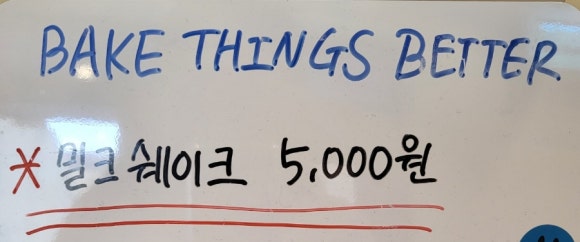 BAKE THINGS BETTER
* 밀크쉐이크 5,000원